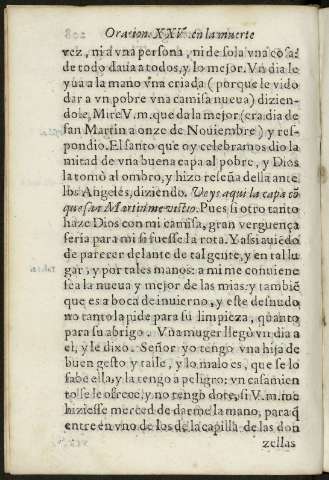 Oracion XXIIII. en la muerte
vez, ni a vna persona, ni de sola vna cosa:
de todo daua a todos, y lo mejor. Vn dia le
yua a la mano vna criada (porque le vido
dar a vn pobre vna camisa nueua) dizien-
dole, Mire V.m. que da la mejor (era dia de
san Martin a onze de Nouiembre) y res-
pondio. El santo que oy celebramos dio la
mitad de vna buena capa al pobre, y Dios
la tomò al ombro, y hizo reseña della ante
los Angeles, diziendo. Veys aqui la capa cõ
que san Martin me vistio. Pues si otro tanto
haze Dios con mi camisa, gran verguença
seria para mi si fuesse la rota. Y assi auiedo
de parecer delante de tal gente, y en tal lu
gar, y por tales manos: a mi me conuiene
sea la nueua y mejor de las mias: y tambiẽ
que es a boca de inuierno, y este desnudo
no tanto la pide para su limpieza, quanto
para su abrigo. Vna muger llegò vn dia a
el, y le dixo. Señor yo tengo vna hija de
buen gesto y talle, y lo malo es, que se lo
sabe ella, y la tengo a peligro: vn casamien
to se le ofrece, y no tengo dote, si V.m. me
hiziesse merced de darme la mano, para q̃
entre en vno de los de la capilla de las don
zellas